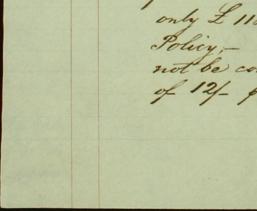 only £ 118
Policy,—
not be co
of 12/-